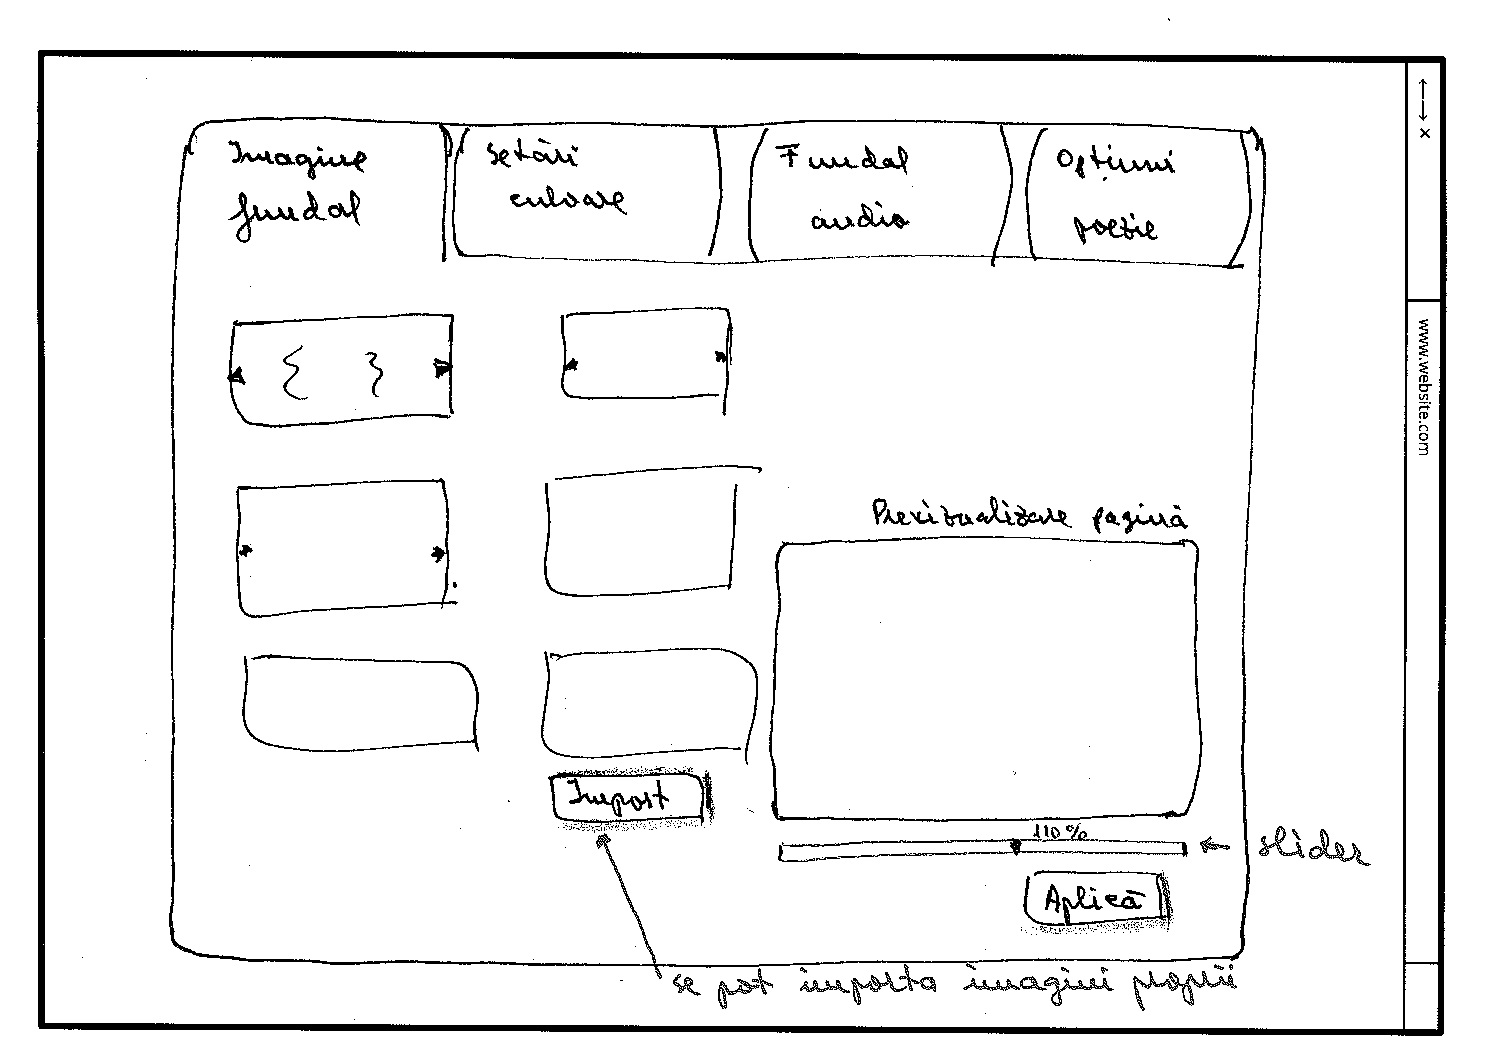 Imagine
fundal
Setări
culoare
Fundal
audio
Opțiuni
poezie
Previzualizare pagină
Import
110%
slider
Aplică
se pot importa imagini proprii
www.website.com